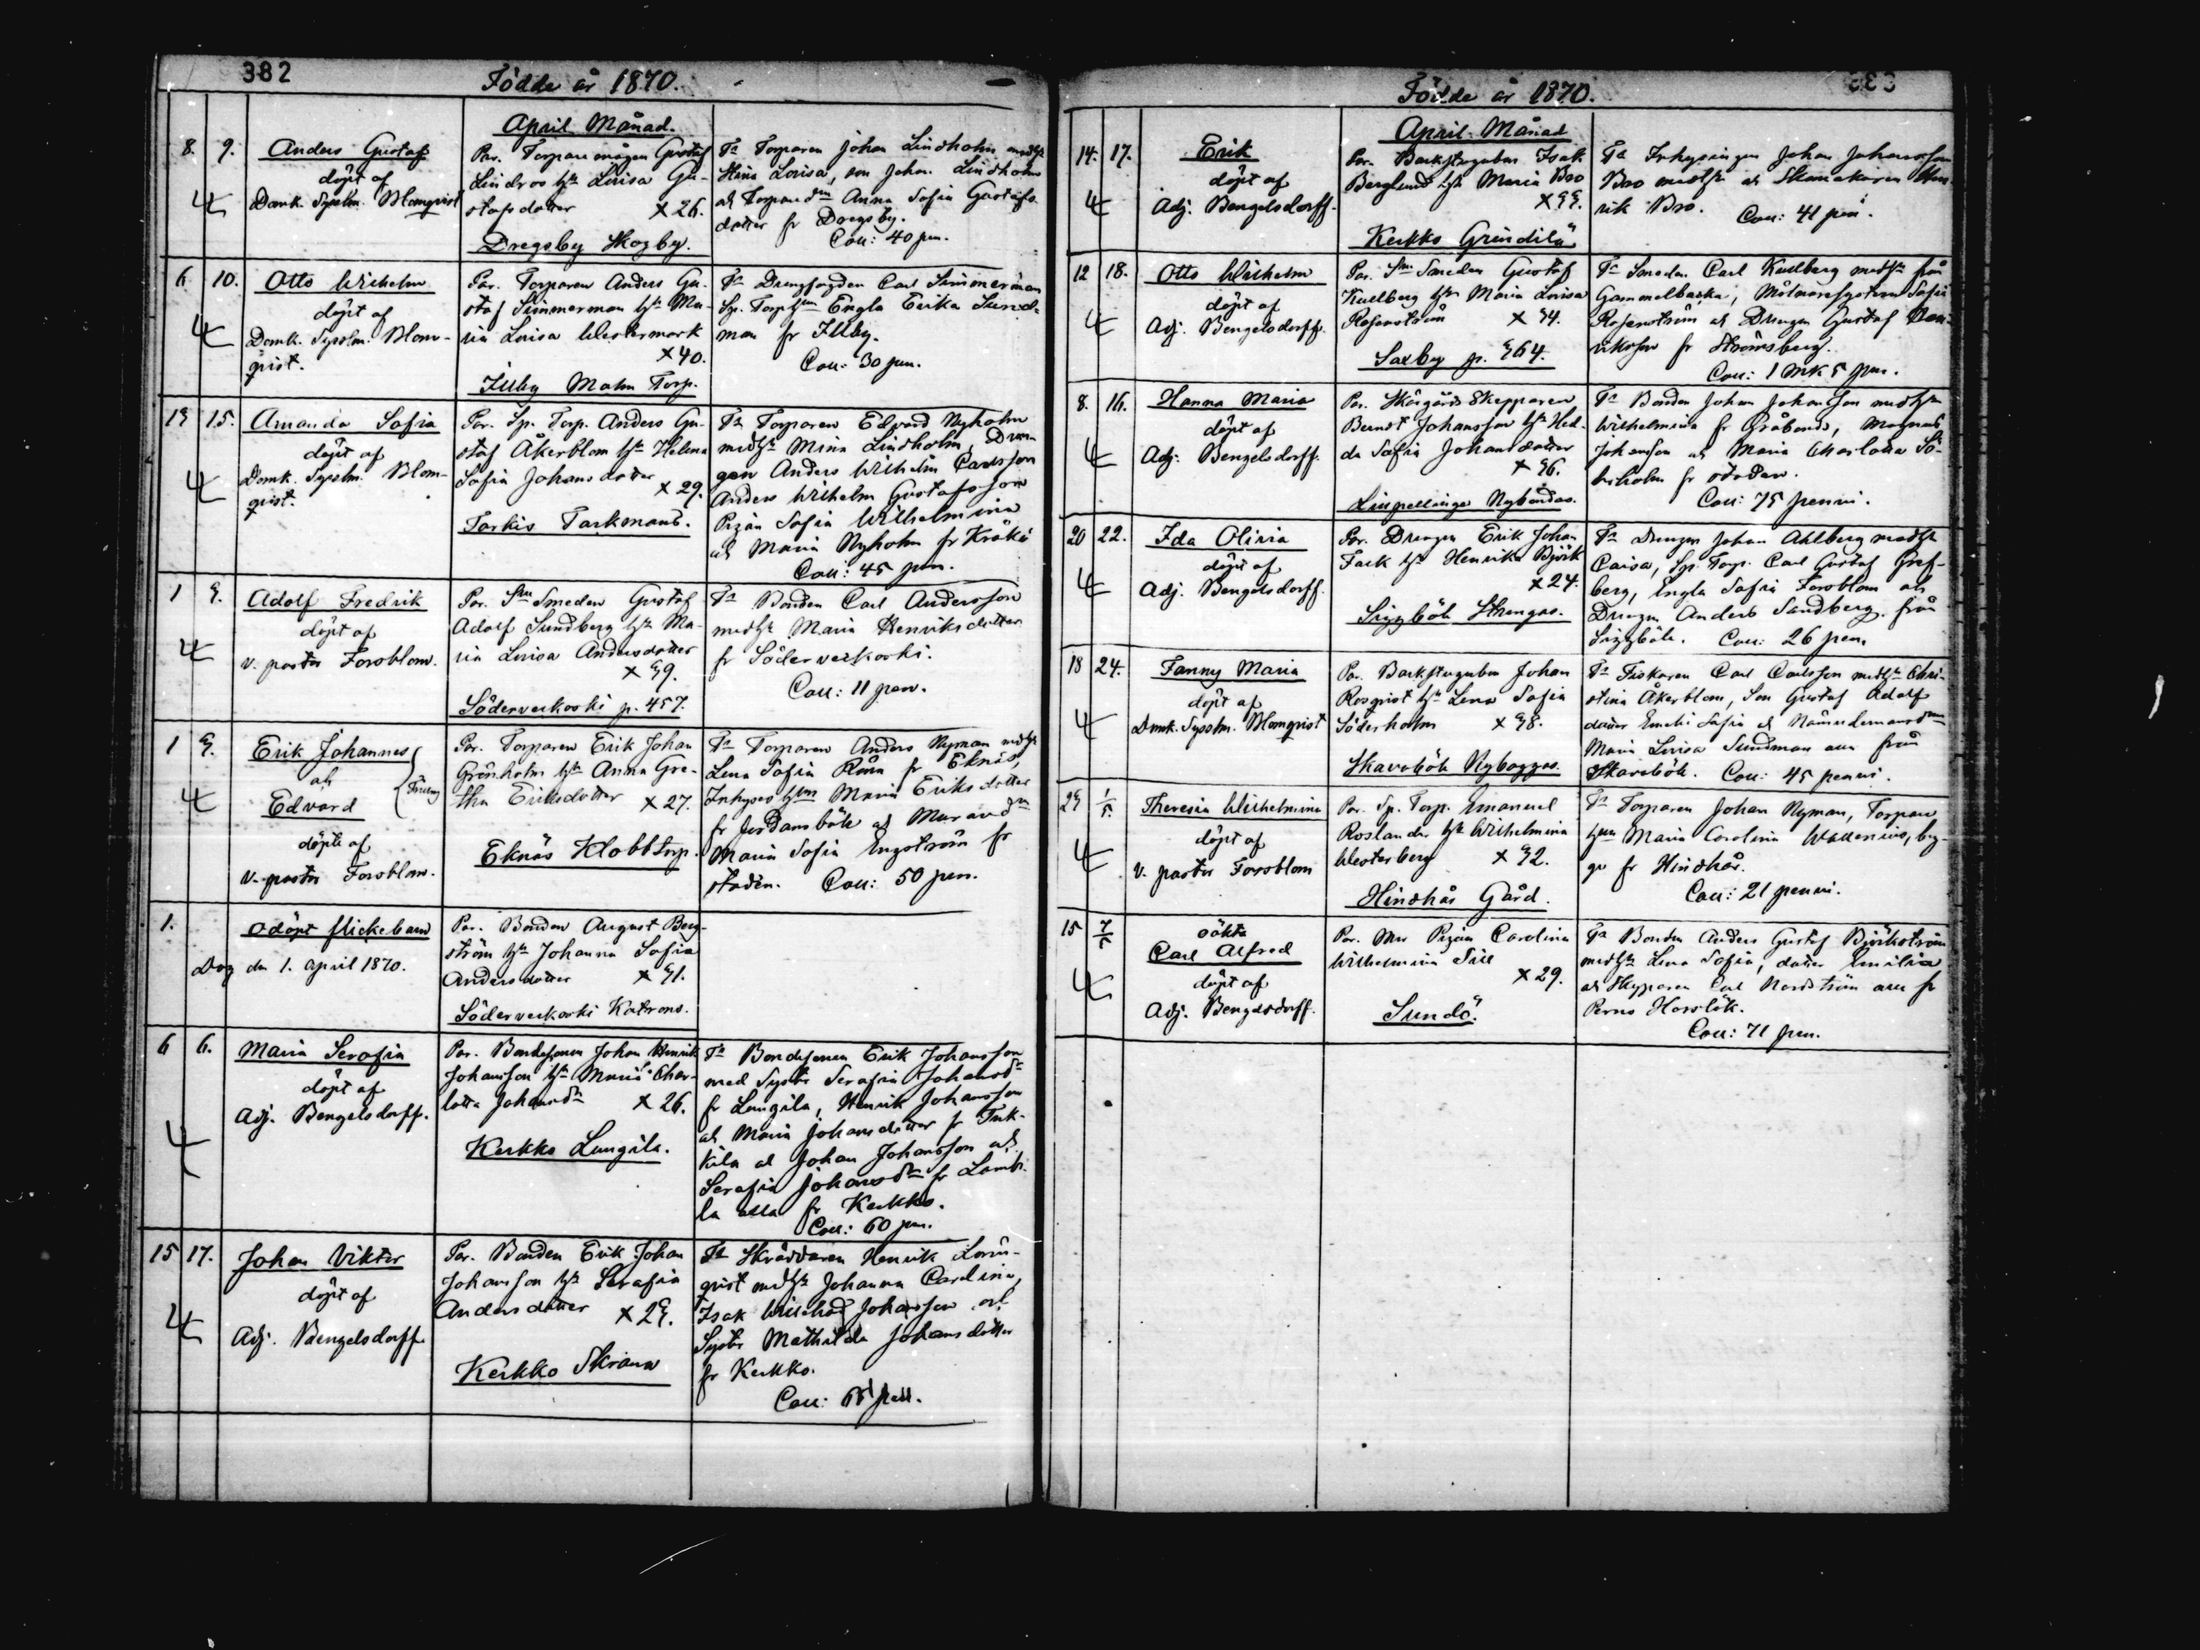 382
Födde år 1870.
April Månad.
8. 9. Anders Gustaf
döpt af
Domk. Sysslm. Blomqvist
Par. Torparemågen Gustaf
Lindroos hu Lovisa Gu-
stafsdotter
x 26.
Dregsby Skogby.
Ts Torparen Johan Lindholm medhu
Stina Lovisa, son Johan Lindholm
ah Torparedn Anna Sofia Gustafs-
dotter fr Dregsby.
Coll: 40 pen.
6 10. Otto Wilhelm
döpt af
Domk. Sysslm. Blom-
qvist.
Par. Torparen Anders Gu-
staf Simmerman hu Ma-
ria Lovisa Westermark
x 40.
Illby Malm Torp.
Ts Drengfogden Carl Simmerman
Sp. Torphun Engla Erika Sund-
man fr Illby.
Coll: 30 pen.
13 15. Amanda Sofia
döpt af
Domk. Sysslm. Blom-
qvist.
Par. Sp. Torp. Anders Gu-
staf Åkerblom hu Helena
Sofia Johansdotter
x 29.
Torkis Tarkmans.
Ts Torparen Edvard Nyholm
medhu Mina Lindholm, Dren-
gen Anders Wilhelm Carlsson
Anders Wilhelm Gustafsson
Pigan Sofia Wilhelmina
ah Maria Nyholm fr Kråkö
Coll: 45 pen.
1 3. Adolf Fredrik
döpt af
v. pastor Forsblom.
Par. Sm Smeden Gustaf
Adolf Sundberg hu Ma-
ria Lovisa Andersdotter
x 39.
Söderveckoski p. 457.
Ts Bonden Carl Andersson
medhu Maria Henriksdotter
fr Söderveckoski.
Coll: 11 pen.
1 3. Erik Johannes
ah
Edvard
döpte af
v. pastor Forsblom.
Par. Torparen Erik Johan
Grönholm hu Anna Gre-
tha Eriksdotter x 27.
Eknäs Klobb torp.
Ts Torparen Anders Nyman medhu
Lena Sofia fr Eknäs,
Inhyses hun Maria Eriksdotter
fr Jordansböle ah
Maria Sofia Engström fr
staden. Coll: 50 pen.
1. Odöpt flickebarn
Dog den 1. April 1870.
Par. Bonden August Berg-
ström hu Johanna Sofia
Andersdotter x 31.
Söderveckoski Katrons.
6 6. Maria Serafia
döpt af
Adj. Bengelsdorff.
Par. Bondesonen Johan Henrik
Johansson hu Maria Char-
lotta Johansdr x 26.
Kerkko Lungila.
Ts Bondesonen Erik Johansson
med Syster Serafia Johansdr
fr Lungila, Henrik Johansson
ah Maria Johansdotter fr Turk-
kila ah Johan Johansson ah
Serafia Johansdr fr Lambi-
la alla fr Kerkko.
Coll: 60 pen.
15 17. Johan Viktor
döpt af
Adj. Bengelsdorff
Par. Bonden Erik Johan
Johansson hu Serafia
Andersdotter x 23.
Kerkko Skraara
Ts Skräddaren Henrik Lönn-
qvist medhu Johanna Carolina,
Isak Willehad Johansson ah
Syster Mathilda Johansdotter
fr Kerkko.
Födde år 1870.
April Månad
14. 17. Erik
döpt af
Adj. Bengelsdorff.
Par. Backstugubon Isak
Berglund hu Maria Bro
x 33.
Kerkko Grindilä
Ts Inhysingen Johan Johansson
Bro medhu ah Skomakaren Hen-
rik Bro. Coll: 41 pen.
12 18. Otto Wilhelm
döpt af
Adj. Bengelsdorff.
Par. Sm Smeden Gustaf
Kullberg hu Maria Lovisa
Rosenström x 34.
Saxby p. 364.
Ts Smeden Carl Kullberg medhu från
Gammelbacka, Sofia
Rosenström ah Drengen Gustaf Hen-
riksson fr Strömsberg.
Coll: 1 mk 5 pen.
8. 16. Hanna Maria
döpt af
Adj. Bengelsdorff.
Par. Skärgårds Skepparen
Bernt Johansson hu Hed-
da Sofia Johansdotter
x 36.
Linpellinge Nybondas.
Ts Bonden Johan Johansson medhu
Wilhelmina fr Gråbonds, Magnus
Johansson ah Maria Charlotta Sö-
derholm fr staden.
Coll: 75 penni.
20 22. Ida Olivia
döpt af
Adj. Bengelsdorff.
Par. Drengen Erik Johan
Fack hu Henrika Björk
x 24.
Siggböle Strengas.
Ts Drengen Johan Ahlberg medhu
Caisa, Sp. Torp. Carl Gustaf Gref-
berg, Engla Sofia Forsblom ah
Drengen Anders Sandberg från
Siggböle. Coll: 26 pen.
18 24. Fanny Maria
döpt af
Domk. Sysslm. Blomqvist
Par. Backstugubon Johan
Rosqvist hu Lena Sofia
Söderholm x 38.
Skavaböle Nybaggas.
Ts Fiskaren Carl Carlsson medhu Chri-
stina Åkerblom, Son Gustaf Adolf
dotter Emelie Sofia ah
Maria Lovisa Sundman alla från
Skavaböle. Coll: 45 penni.
23 1/5. Theresia Wilhelmina
döpt af
v. pastor Forsblom
Par. Sp. Torp. Emanuel
Roslander hu Wilhelmina
Westerberg x 32.
Hindhår Gård.
Ts Torparen Johan Nyman, Torpare
hun Maria Carolina Wallenius, beg-
ge fr Hindhår.
Coll: 21 penni.
15 7/5 oäkta
Carl Alfred
döpt af
Adj. Bengelsdorff.
Par. Mor Pigan Carolina
Wilhelmina Sill
x 29.
Sundö.
Ts Bonden Anders Gustaf Björkström
medhu Lena Sofia, dotter Emilia
ah Skepparen Carl Nordström alla fr
Perno Horslök.
Coll: 71 pen.